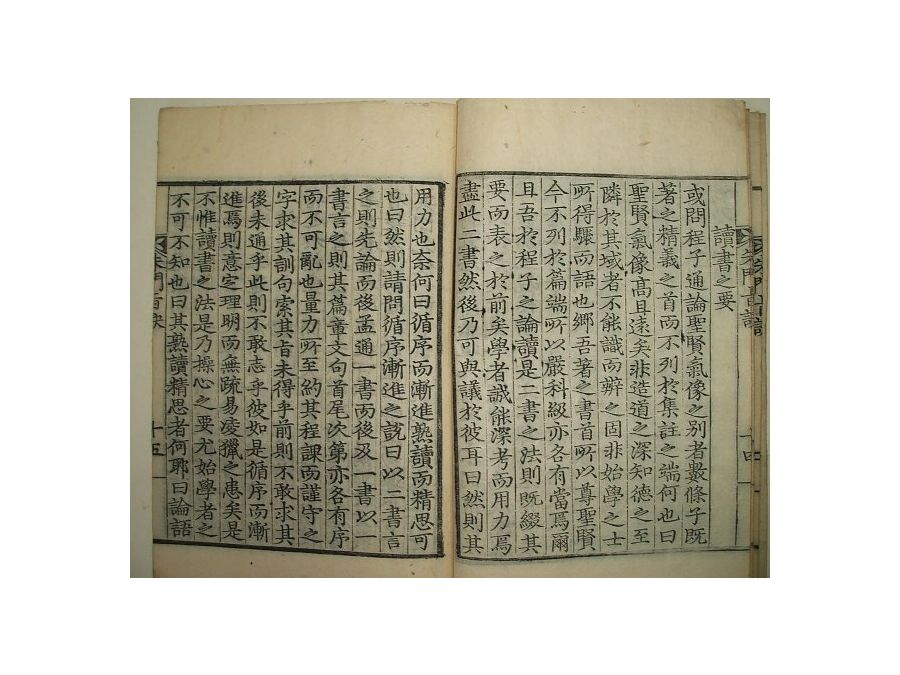 朱門旨訣 十四
讀書之要
或問程子通論聖賢氣像之別者數條子既
著之精義之首而不列於集註之端何也曰
聖賢氣像高且遠矣非造道之深知德之至
隣於其域者不能識而辨之固非始學之士
所得驟而語也鄉吾著之書首所以尊聖賢
今不列於篇端所以嚴科級亦各有當焉爾
且吾於程子之論讀是二書之法則既綴其
要而表之於前矣學者誠能深考而用力焉
盡此二書然後乃可與議於彼耳曰然則其
用力也奈何曰循序而漸進熟讀而精思可
也曰然則請問循序漸進之說曰以二書言
之則先論而後孟通一書而後及一書以一
書言之則其篇章文句首尾次第亦各有序
而不可亂也量力所至約其程課而謹守之
字求其訓句索其旨未得乎前則不敢求其
後未通乎此則不敢志乎彼如是循序而漸
進焉則意定理明而無疏易凌獵之患矣是
不惟讀書之法是乃操心之要尤始學者之
不可不知也曰其熟讀精思者何耶曰論語
朱門旨訣 十五